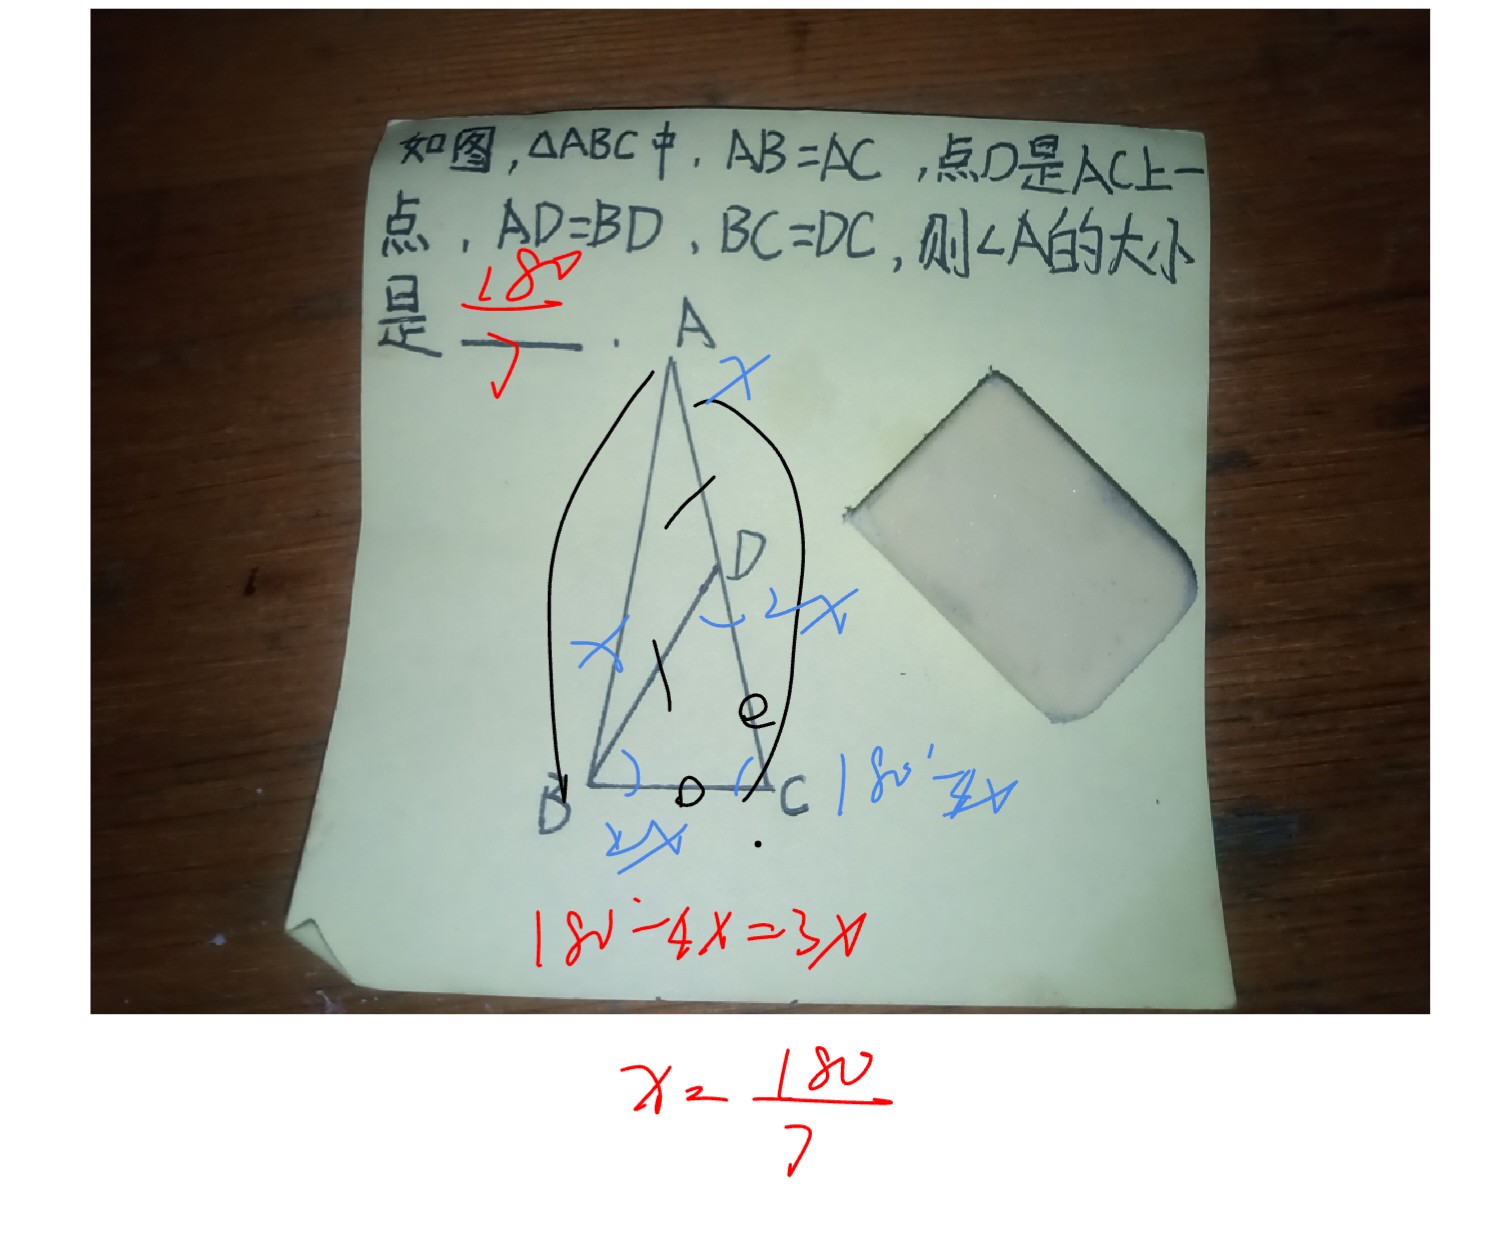 如图,△ABC中,AB=AC,点D是AC上一
点,AD=BD,BC=DC,则∠A的大小
是 180/7 .
A
x
D
2x
x
B
C
180°-4x
2x
180°-4x=3x
x=180/7